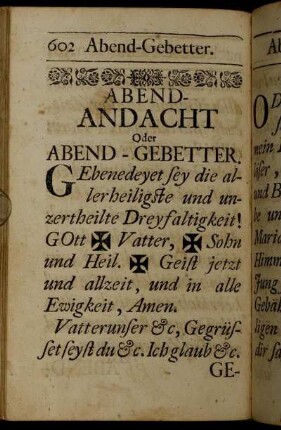 602 Abend-Gebetter.
ABEND-
ANDACHT
Oder
ABEND-GEBETTER.
GEbenedeyet sey die al-
lerheiligste und un-
zertheilte Dreyfaltigkeit!
GOtt ✠ Vatter, ✠ Sohn
und Heil. ✠ Geist jetzt
und allzeit, und in alle
Ewigkeit, Amen.
Vatterunser &c, Gegrüs-
set seyst du &c. Ich glaub &c.
GE-